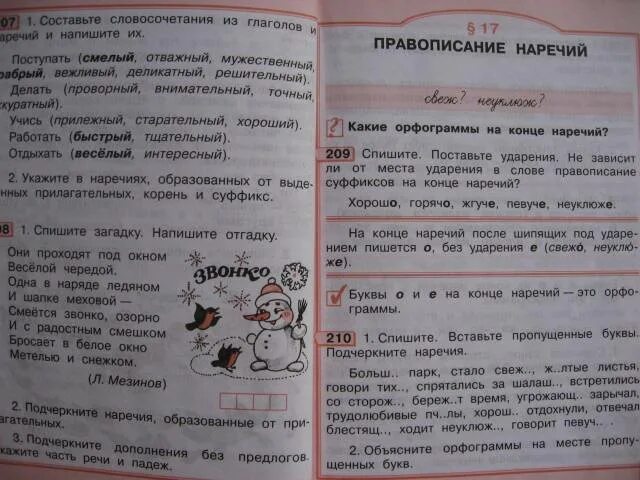 07 1. Составьте словосочетания из глаголов и
наречий и напишите их.
Поступать (смелый, отважный, мужественный,
храбрый, вежливый, деликатный, решительный).
Делать (проворный, внимательный, точный,
аккуратный).
Учись (прилежный, старательный, хороший).
Работать (быстрый, тщательный).
Отдыхать (весёлый, интересный).
2. Укажите в наречиях, образованных от выде-
ленных прилагательных, корень и суффикс.
08 1. Спишите загадку. Напишите отгадку.
Они проходят под окном
Весёлой чередой.
Одна в наряде ледяном
И шапке меховой —
Смеётся звонко, озорно
И с радостным смешком
Бросает в белое окно
Метелью и снежком.
(Л. Мезинов)
ЗВОНКО
2. Подчеркните наречия, образованные от при-
лагательных.
3. Подчеркните дополнения без предлогов.
Укажите часть речи и падеж.
§ 17
ПРАВОПИСАНИЕ НАРЕЧИЙ
свеж? неуклюж?
? Какие орфограммы на конце наречий?
209 Спишите. Поставьте ударения. Не зависит
ли от места ударения в слове правописание
суффиксов на конце наречий?
Хорошо, горячо, жгуче, певуче, неуклюже.
На конце наречий после шипящих под ударе-
нием пишется о, без ударения е (свежо, неуклю-
же).
Буквы о и е на конце наречий — это орфо-
граммы.
210 1. Спишите. Вставьте пропущенные буквы.
Подчеркните наречия.
Больш.. парк, стало свеж.., ж..лтые листья,
говори тих.., спрятались за шалаш.., встретились
со сторож.., береж..т время, угрожающ.. зарычал,
трудолюбивые пч..лы, хорош.. отдохнули, отвечал
блестящ.., ходит неуклюж.., говорит певуч.. .
2. Объясните орфограммы на месте пропу-
щенных букв.